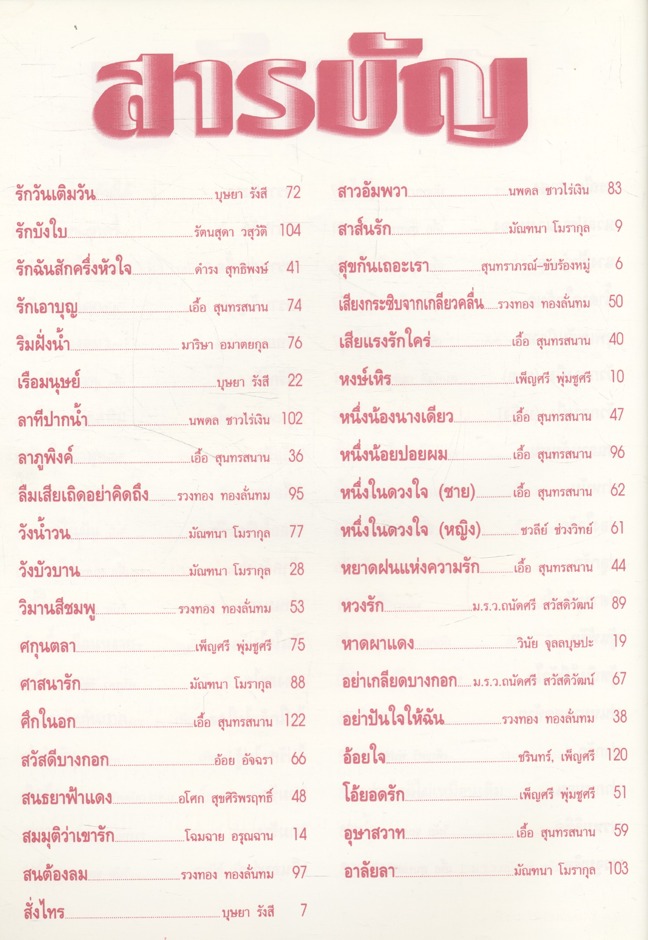 สารบัญ
รักวันเติมวัน บุษยา รังสี 72
รักบังใบ รัตนสุดา วสุวัติ 104
รักฉันสักครึ่งหัวใจ ดำรง สุทธิพงษ์ 41
รักเอาบุญ เอื้อ สุนทรสนาน 74
ริมฝั่งน้ำ มาริษา อมาตยกุล 76
เรือมนุษย์ บุษยา รังสี 22
ลาทีปากน้ำ นพดล ชาวไร่เงิน 102
ลาภูพิงค์ เอื้อ สุนทรสนาน 36
ลืมเสียเถิดอย่าคิดถึง รวงทอง ทองลั่นทม 95
วังน้ำวน มัณฑนา โมรากุล 77
วังบัวบาน มัณฑนา โมรากุล 28
วิมานสีชมพู รวงทอง ทองลั่นทม 53
ศกุนตลา เพ็ญศรี พุ่มชูศรี 75
ศาสนารัก มัณฑนา โมรากุล 88
ศึกในอก เอื้อ สุนทรสนาน 122
สวัสดีบางกอก อ้อย อัจฉรา 66
สนธยาฟ้าแดง อโศก สุขศิริพรฤทธิ์ 48
สมมุติว่าเขารัก โฉมฉาย อรุณฉาน 14
สนต้องลม รวงทอง ทองลั่นทม 97
สั่งไทร บุษยา รังสี 7
สาวอัมพวา นพดล ชาวไร่เงิน 83
สาส์นรัก มัณฑนา โมรากุล 9
สุขกันเถอะเรา สุนทราภรณ์-ขับร้องหมู่ 6
เสียงกระซิบจากเกลียวคลื่น รวงทอง ทองลั่นทม 50
เสียแรงรักใคร่ เอื้อ สุนทรสนาน 40
หงษ์เหิร เพ็ญศรี พุ่มชูศรี 10
หนึ่งน้องนางเดียว เอื้อ สุนทรสนาน 47
หนึ่งน้อยปอยผม เอื้อ สุนทรสนาน 96
หนึ่งในดวงใจ (ชาย) เอื้อ สุนทรสนาน 62
หนึ่งในดวงใจ (หญิง) ชวลีย์ ช่วงวิทย์ 61
หยาดฝนแห่งความรัก เอื้อ สุนทรสนาน 44
หวงรัก ม.ร.ว.ถนัดศรี สวัสดิวัฒน์ 89
หาดผาแดง วินัย จุลลบุษปะ 19
อย่าเกลียดบางกอก ม.ร.ว.ถนัดศรี สวัสดิวัฒน์ 67
อย่าปันใจให้ฉัน รวงทอง ทองลั่นทม 38
อ้อยใจ ชรินทร์, เพ็ญศรี 120
โอ้ยอดรัก เพ็ญศรี พุ่มชูศรี 51
อุษาสวาท เอื้อ สุนทรสนาน 59
อาลัยลา มัณฑนา โมรากุล 103